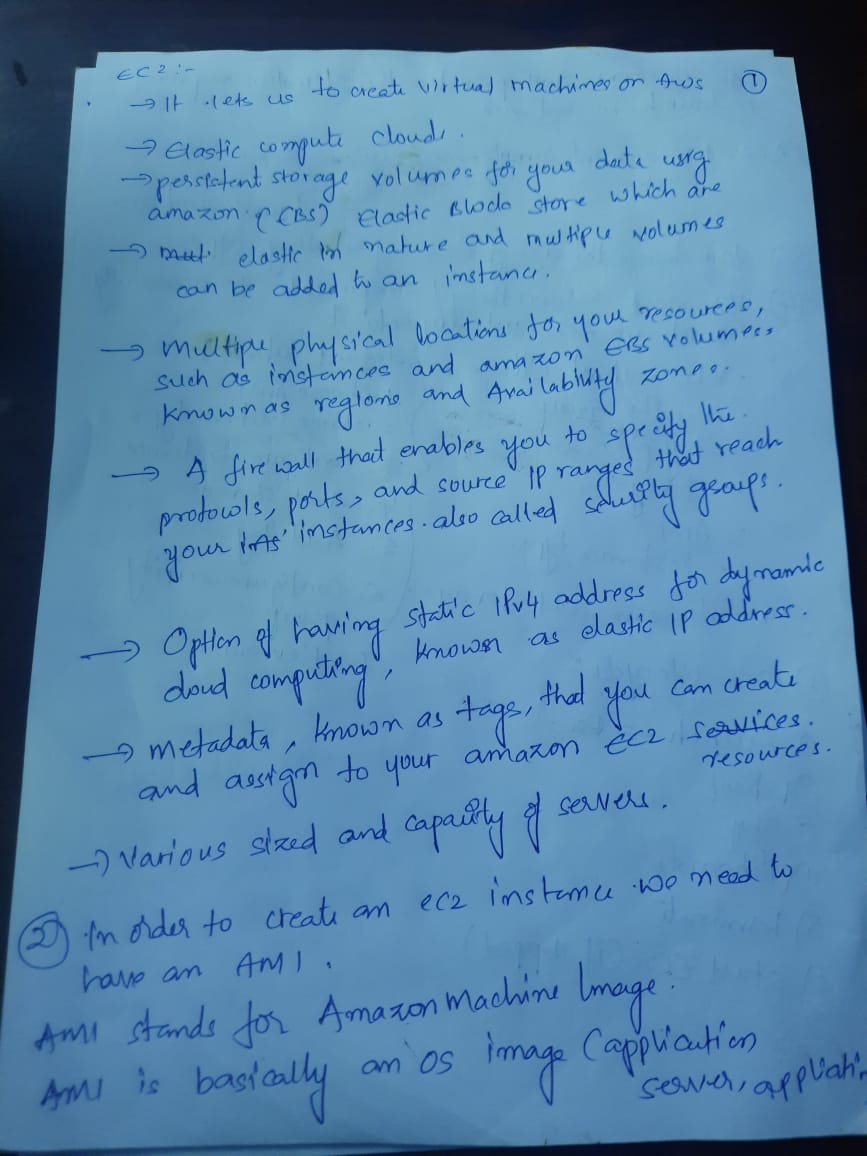 EC2 :-
①
→ It lets us to create virtual machines on Aws
→ Elastic compute cloud.
→ persistent storage volumes for your data using
amazon (EBS) Elastic Block store which are
→ elastic in nature and multiple volumes
can be added to an instance.
→ Multiple physical locations for your resources,
such as instances and amazon EBS volumes,
known as regions and Availability zones.
→ A fire wall that enables you to specify the
protocols, ports, and source IP ranges that reach
your instances. also called security groups.
→ Option of having static IPv4 address for dynamic
cloud computing, known as elastic IP address.
→ metadata, known as tags, that you can create
and assign to your amazon EC2 services.
resources.
→ Various sized and capacity of servers.
② In order to create an ec2 instance we need to
have an AMI.
AMI stands for Amazon Machine Image.
AMI is basically an os image (application
server, applicati